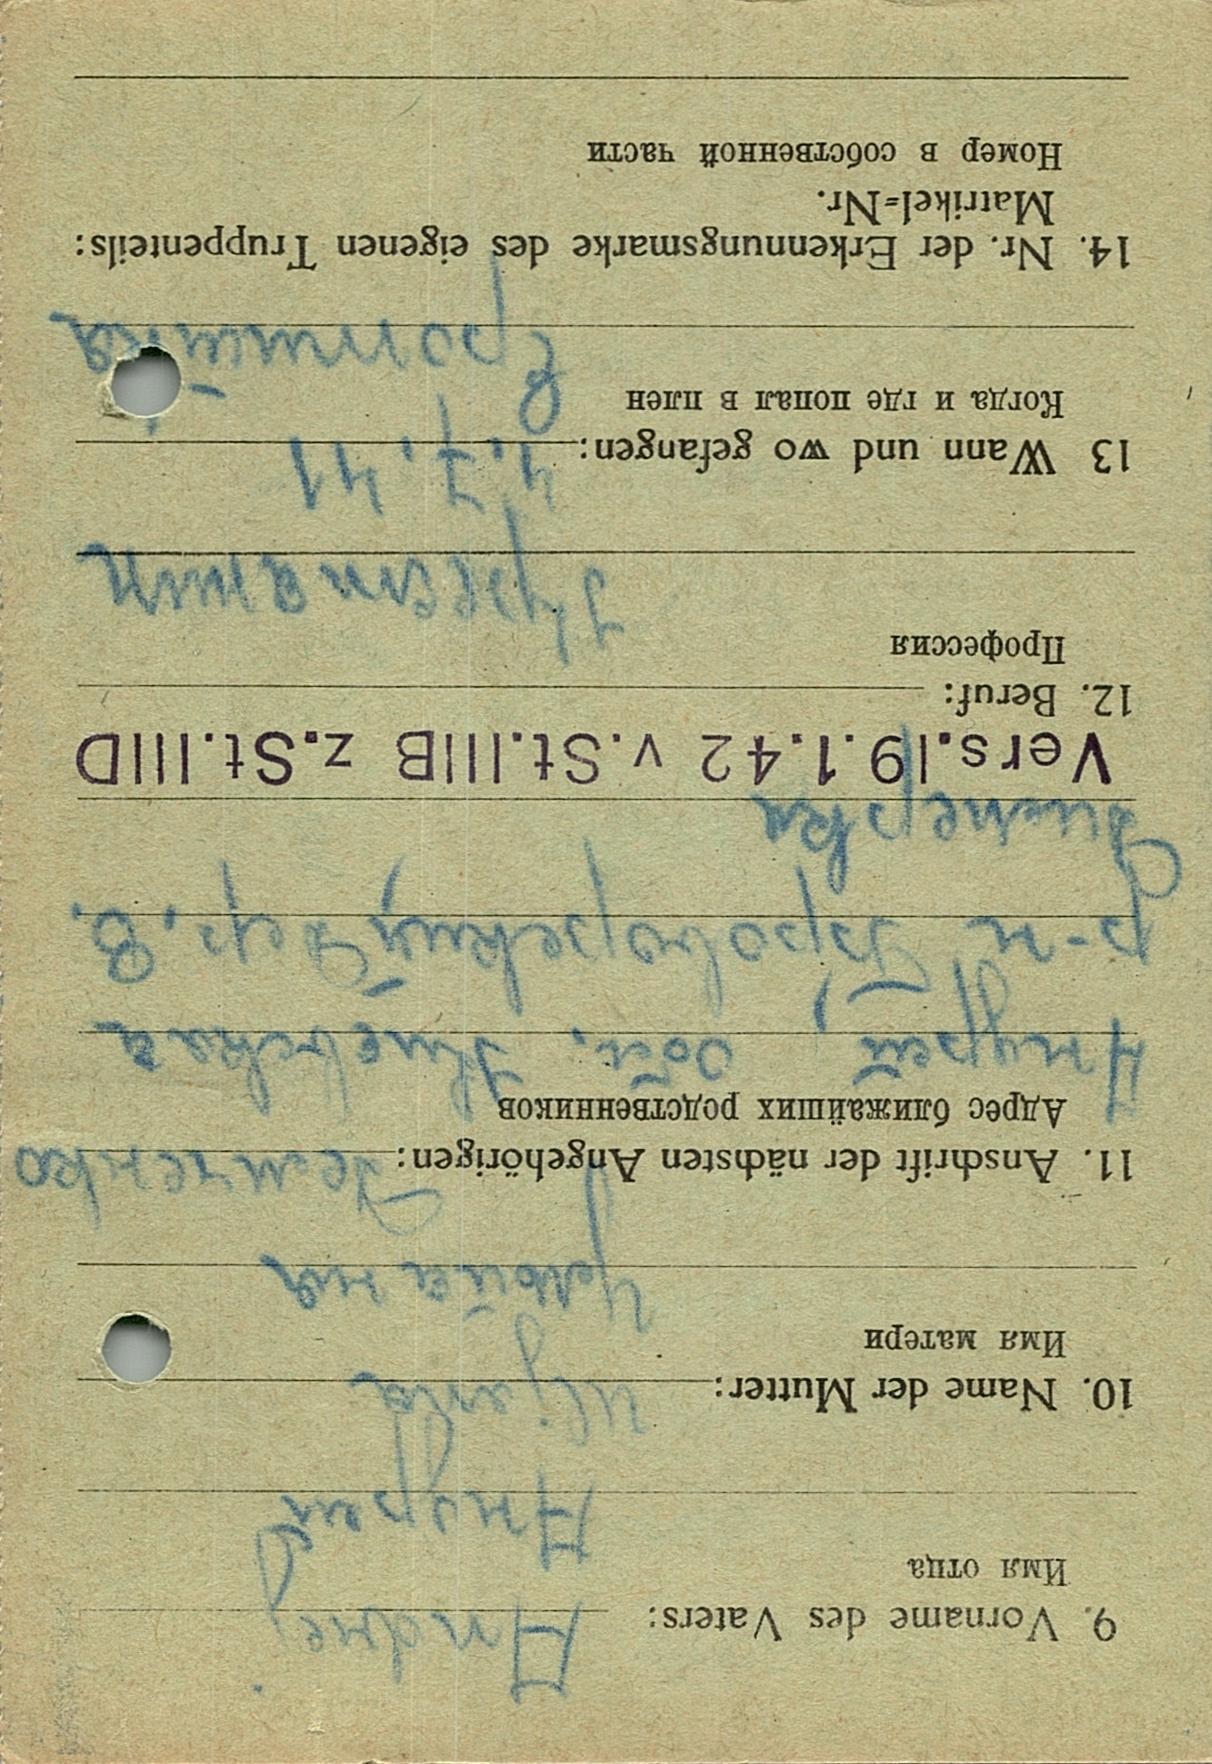 9. Vorname des Vaters: Andrej
Имя отца
Андрей
10. Name der Mutter: Uljana
Имя матери
Ульяна
11. Anschrift der nächsten Angehörigen: Демченко
Адрес ближайших родственников
Андрей, обл. Киевская
р-н Броворский, Дер. В.
Димерка
Vers.19.1.42 v.St.IIIB z.St.IIID
12. Beruf:
Профессия
13 Wann und wo gefangen: 4.7.41
Когда и где попал в плен
14. Nr. der Erkennungsmarke des eigenen Truppenteils:
Matrikel-Nr.
Номер в собственной части